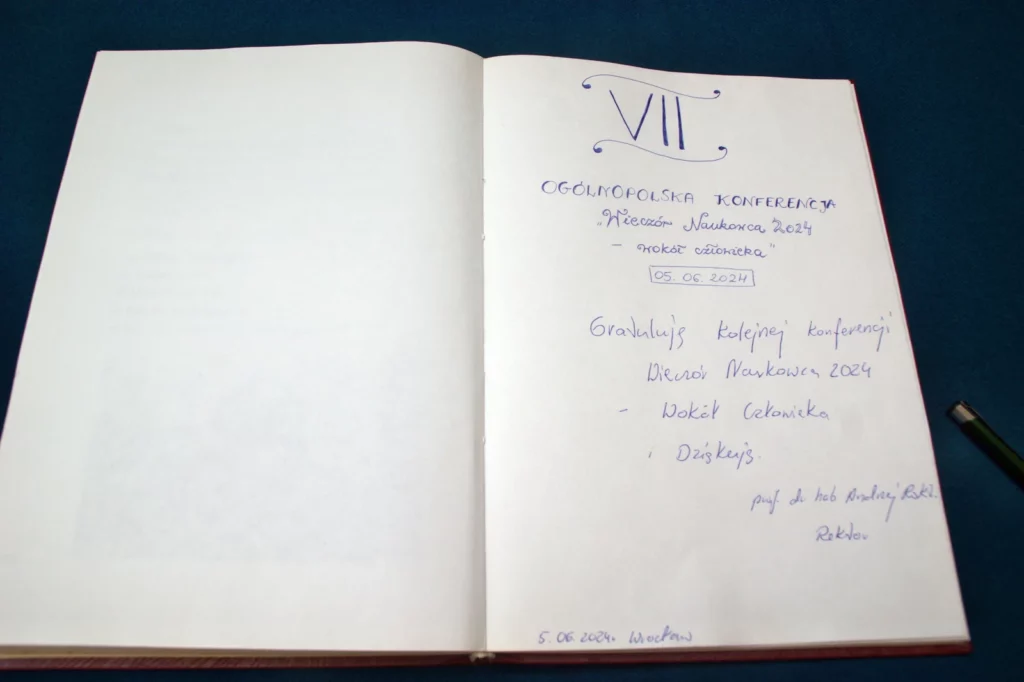 VII
OGÓLNOPOLSKA KONFERENCJA
„Wieczór Naukowca 2024
– wokół człowieka"
05. 06. 2024
Gratuluję kolejnej konferencji
Wieczór Naukowca 2024
- Wokół Człowieka
i Dziękuję.
prof. dr hab Andrzej
Rektor
5.06.2024r. Wrocław